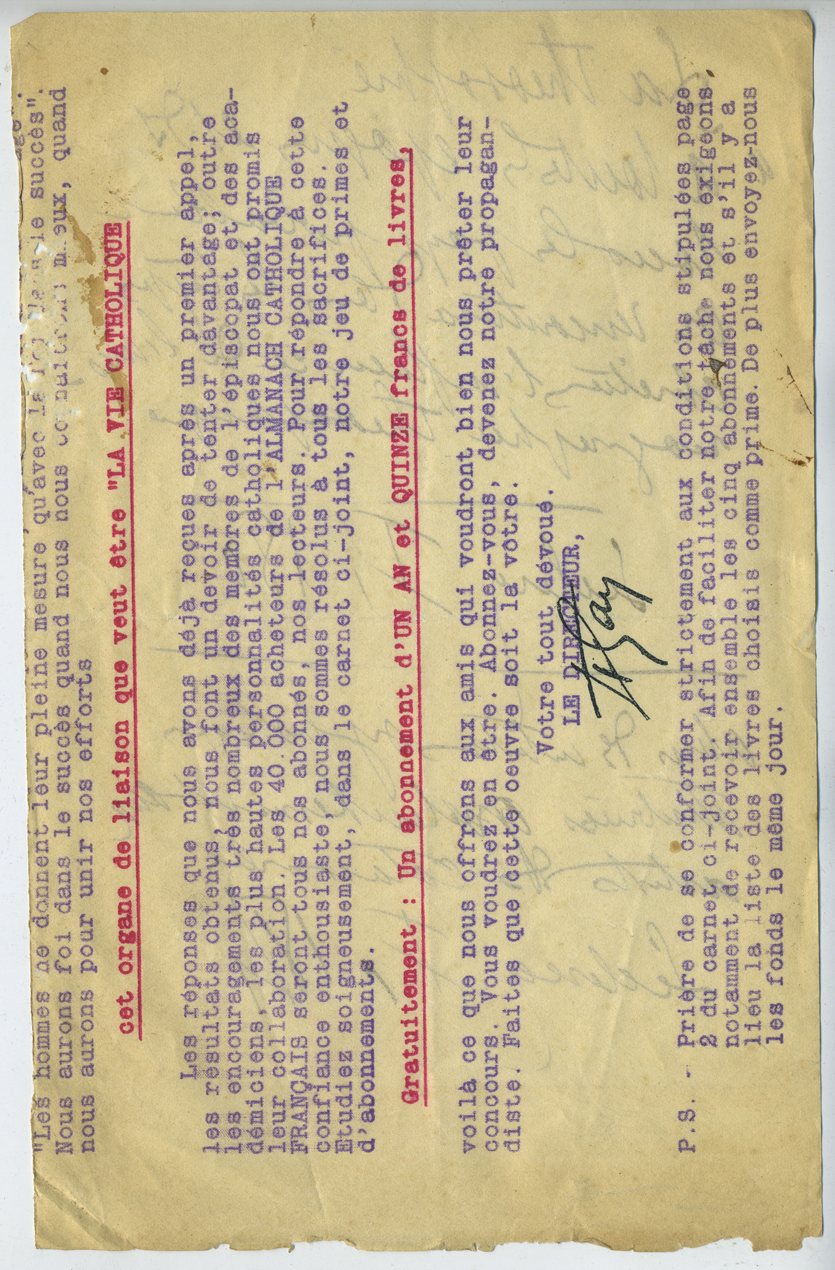 "Les hommes ne donnent leur pleine mesure qu'avec la foi dans le succès".
Nous aurons foi dans le succès quand nous nous connaîtrons mieux, quand
nous aurons pour unir nos efforts
cet organe de liaison que veut être "LA VIE CATHOLIQUE
Les réponses que nous avons déjà reçues après un premier appel,
les résultats obtenus, nous font un devoir de tenter davantage; outre
les encouragements très nombreux des membres de l'épiscopat et des aca-
démiciens, les plus hautes personnalités catholiques nous ont promis
leur collaboration. Les 40.000 acheteurs de l'ALMANACH CATHOLIQUE
FRANÇAIS seront tous nos abonnés, nos lecteurs. Pour répondre à cette
confiance enthousiaste, nous sommes résolus à tous les sacrifices.
Etudiez soigneusement, dans le carnet ci-joint, notre jeu de primes et
d'abonnements.
Gratuitement : Un abonnement d'UN AN et QUINZE francs de livres,
voilà ce que nous offrons aux amis qui voudront bien nous prêter leur
concours. Vous voudrez en être. Abonnez-vous, devenez notre propagan-
diste. Faites que cette oeuvre soit la vôtre.
Votre tout dévoué.
LE DIRECTEUR,
P.S. - Prière de se conformer strictement aux conditions stipulées page
2 du carnet ci-joint. Afin de faciliter notre tâche nous exigeons
notamment de recevoir ensemble les cinq abonnements et s'il y a
lieu la liste des livres choisis comme prime. De plus envoyez-nous
les fonds le même jour.